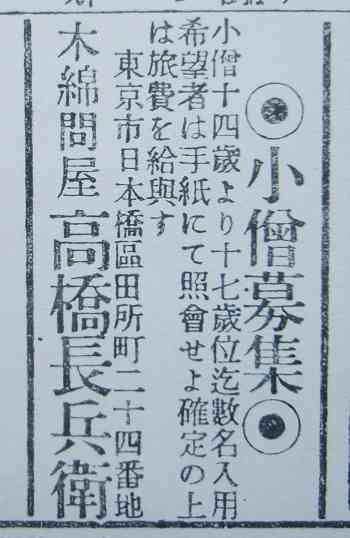 ◉小僧募集◉
小僧十四歲より十七歲位迄數名入用
希望者は手紙にて照會せよ確定の上
は旅費を給與す
東京市日本橋區田所町二十四番地
木綿問屋 高橋長兵衛